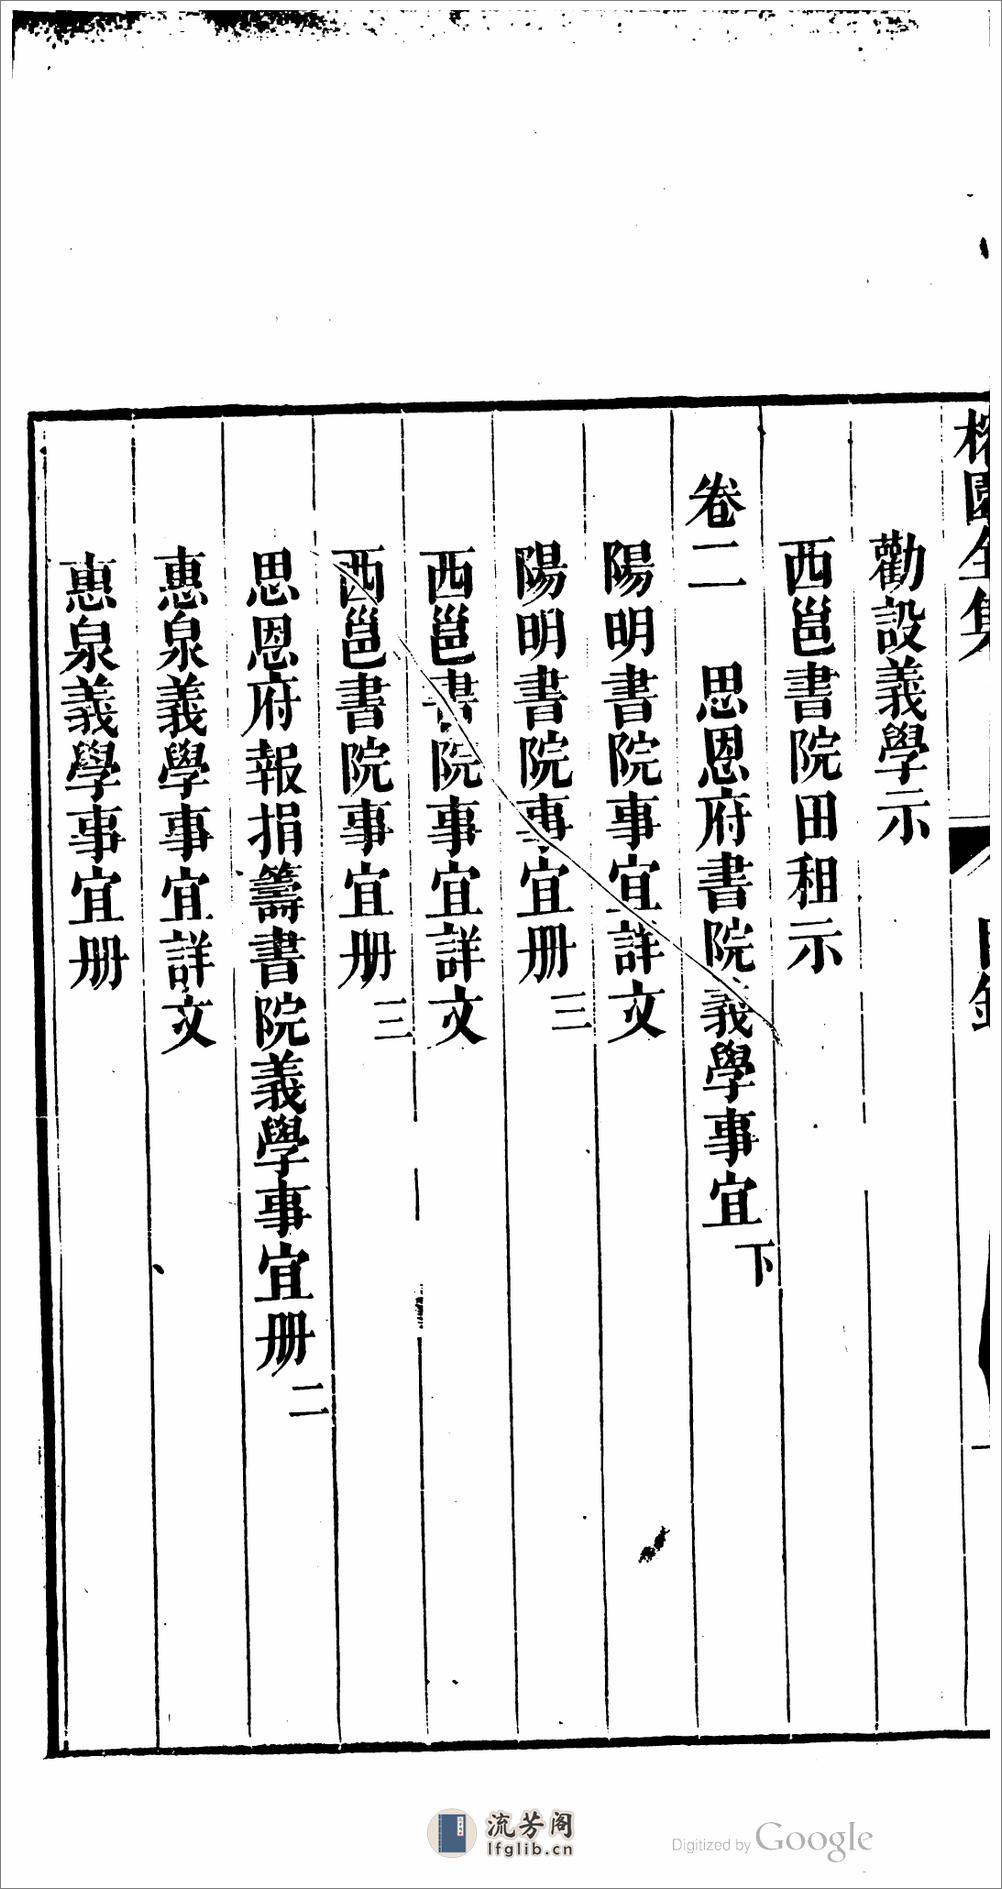 園全集
勸設義學示
西邕書院田租示
卷二　思恩府書院義學事宜下
陽明書院事宜詳文
陽明書院事宜册三
西邕書院事宜詳文
西邕書院事宜册三
思恩府報捐籌書院義學事宜册二
惠泉義學事宜詳文
惠泉義學事宜册
流芳阁
lfglib.cn
Digitized by Google